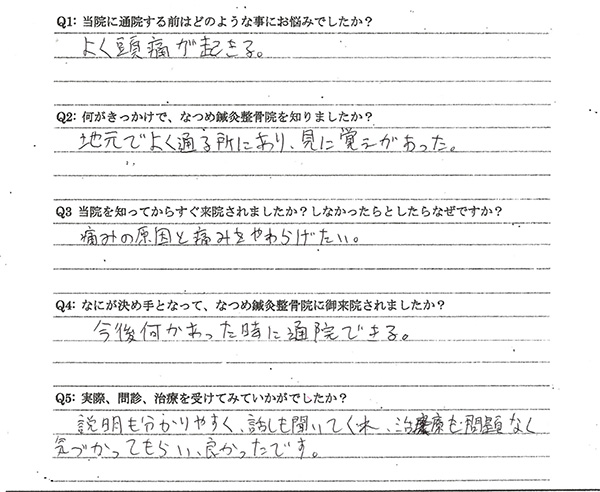 Q1: 当院に通院する前はどのような事にお悩みでしたか?
よく頭痛が起きる。
Q2: 何がきっかけで、なつめ鍼灸整骨院を知りましたか?
地元でよく通る所にあり、見に覚えがあった。
Q3 当院を知ってからすぐ来院されましたか?しなかったらとしたらなぜですか?
痛みの原因と痛みをやわらげたい。
Q4: なにが決め手となって、なつめ鍼灸整骨院に御来院されましたか?
今後何かあった時に通院できる。
Q5: 実際、問診、治療を受けてみていかがでしたか?
説明も分かりやすく、話しも聞いてくれ、治療も問題なく
気づかってもらい、良かったです。